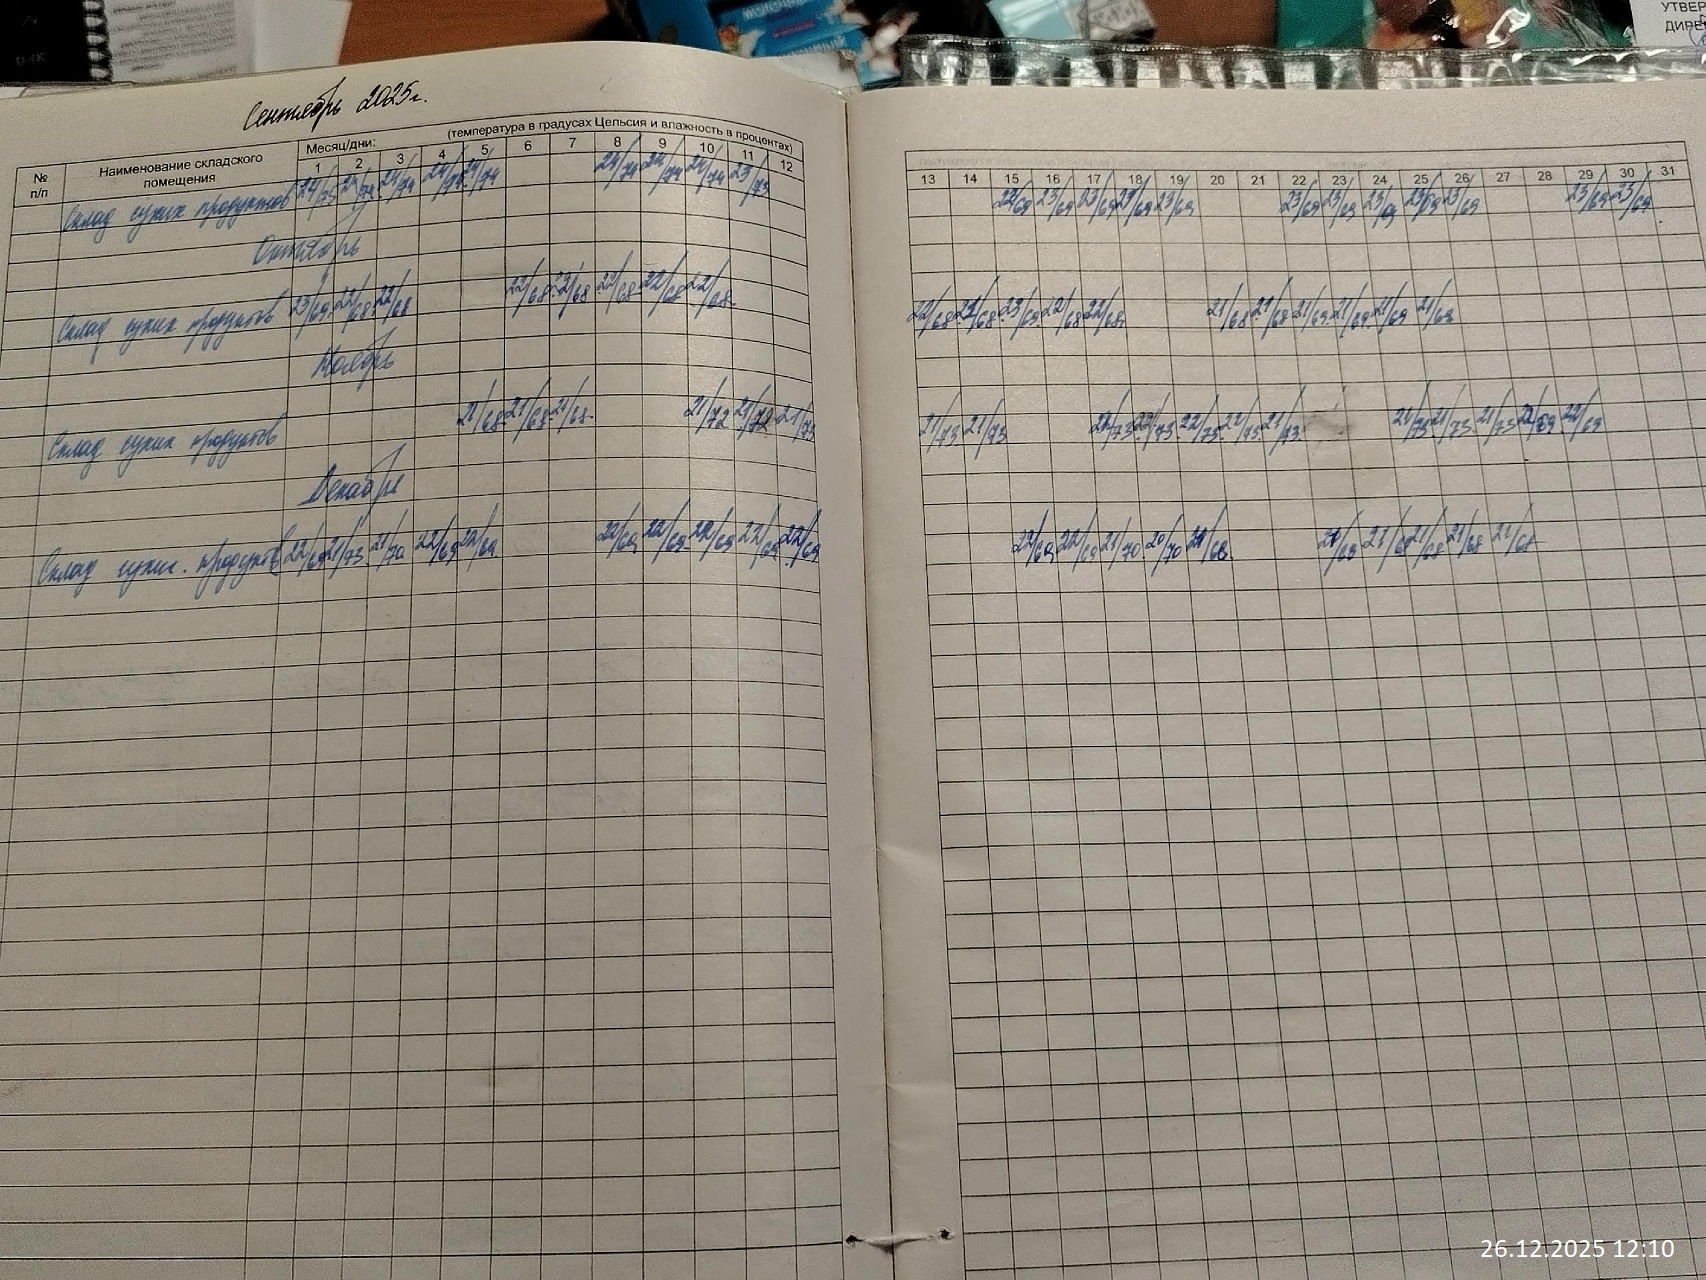 УТВЕР
ДИРЕ
Сентябрь 2025г.
(температура в градусах Цельсия и влажность в процентах)
№ п/п
Наименование складского помещения
Месяц/дни:
1 2 3 4 5 6 7 8 9 10 11 12
13 14 15 16 17 18 19 20 21 22 23 24 25 26 27 28 29 30 31
Склад сухих продуктов 24/75 24/74 24/74 24/74 24/74 24/74 24/74 24/74 23/73
22/69 23/69 23/69 23/69 23/69 23/69 23/69 23/69 23/69 23/69 23/69
Октябрь
Склад сухих продуктов 23/69 22/68 22/68 22/68 22/68 22/68 22/68
22/68 22/68 22/68 21/68 21/68 21/69 21/69 21/69 21/69
Ноябрь
Склад сухих продуктов 21/68 21/68 21/68 21/72 21/72 21/73
21/73 21/73 22/73 22/73 21/73 21/73 21/73 22/69
Декабрь
Склад сухих продуктов 22/69 21/73 21/70 22/69 22/69 22/69 22/69 22/69 22/69 22/69
22/69 22/69 21/70 20/70 21/68 21/68 21/68 21/68 21/68
26.12.2025 12:10